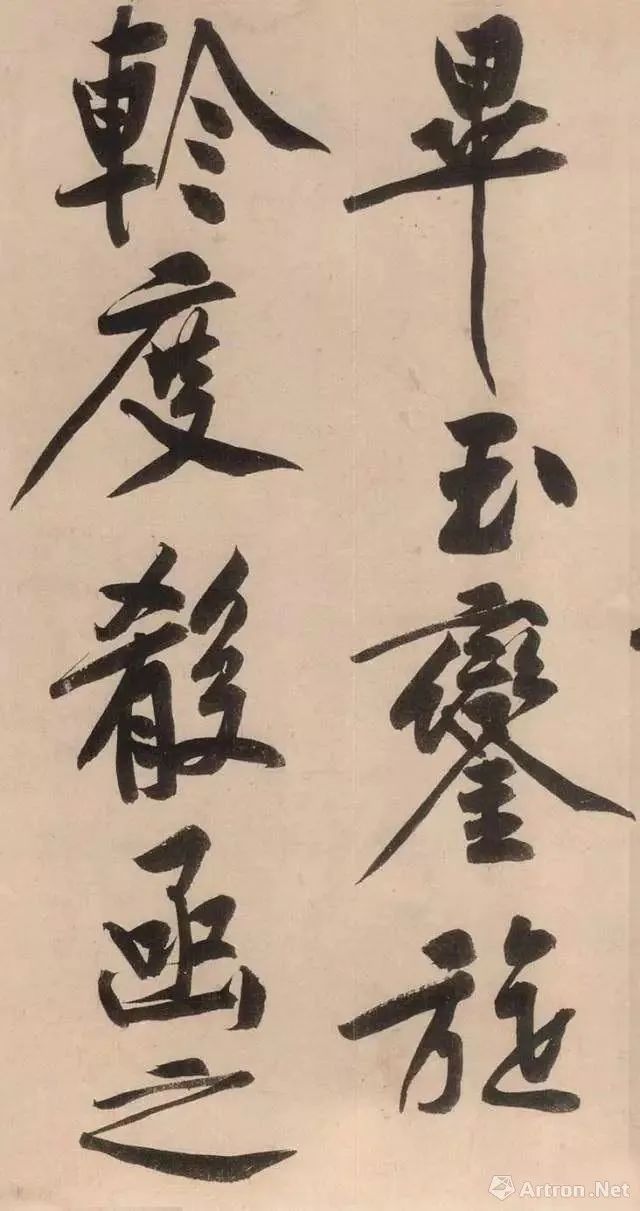 畢玉鑾旋
軫度殽函之
Artron.Net